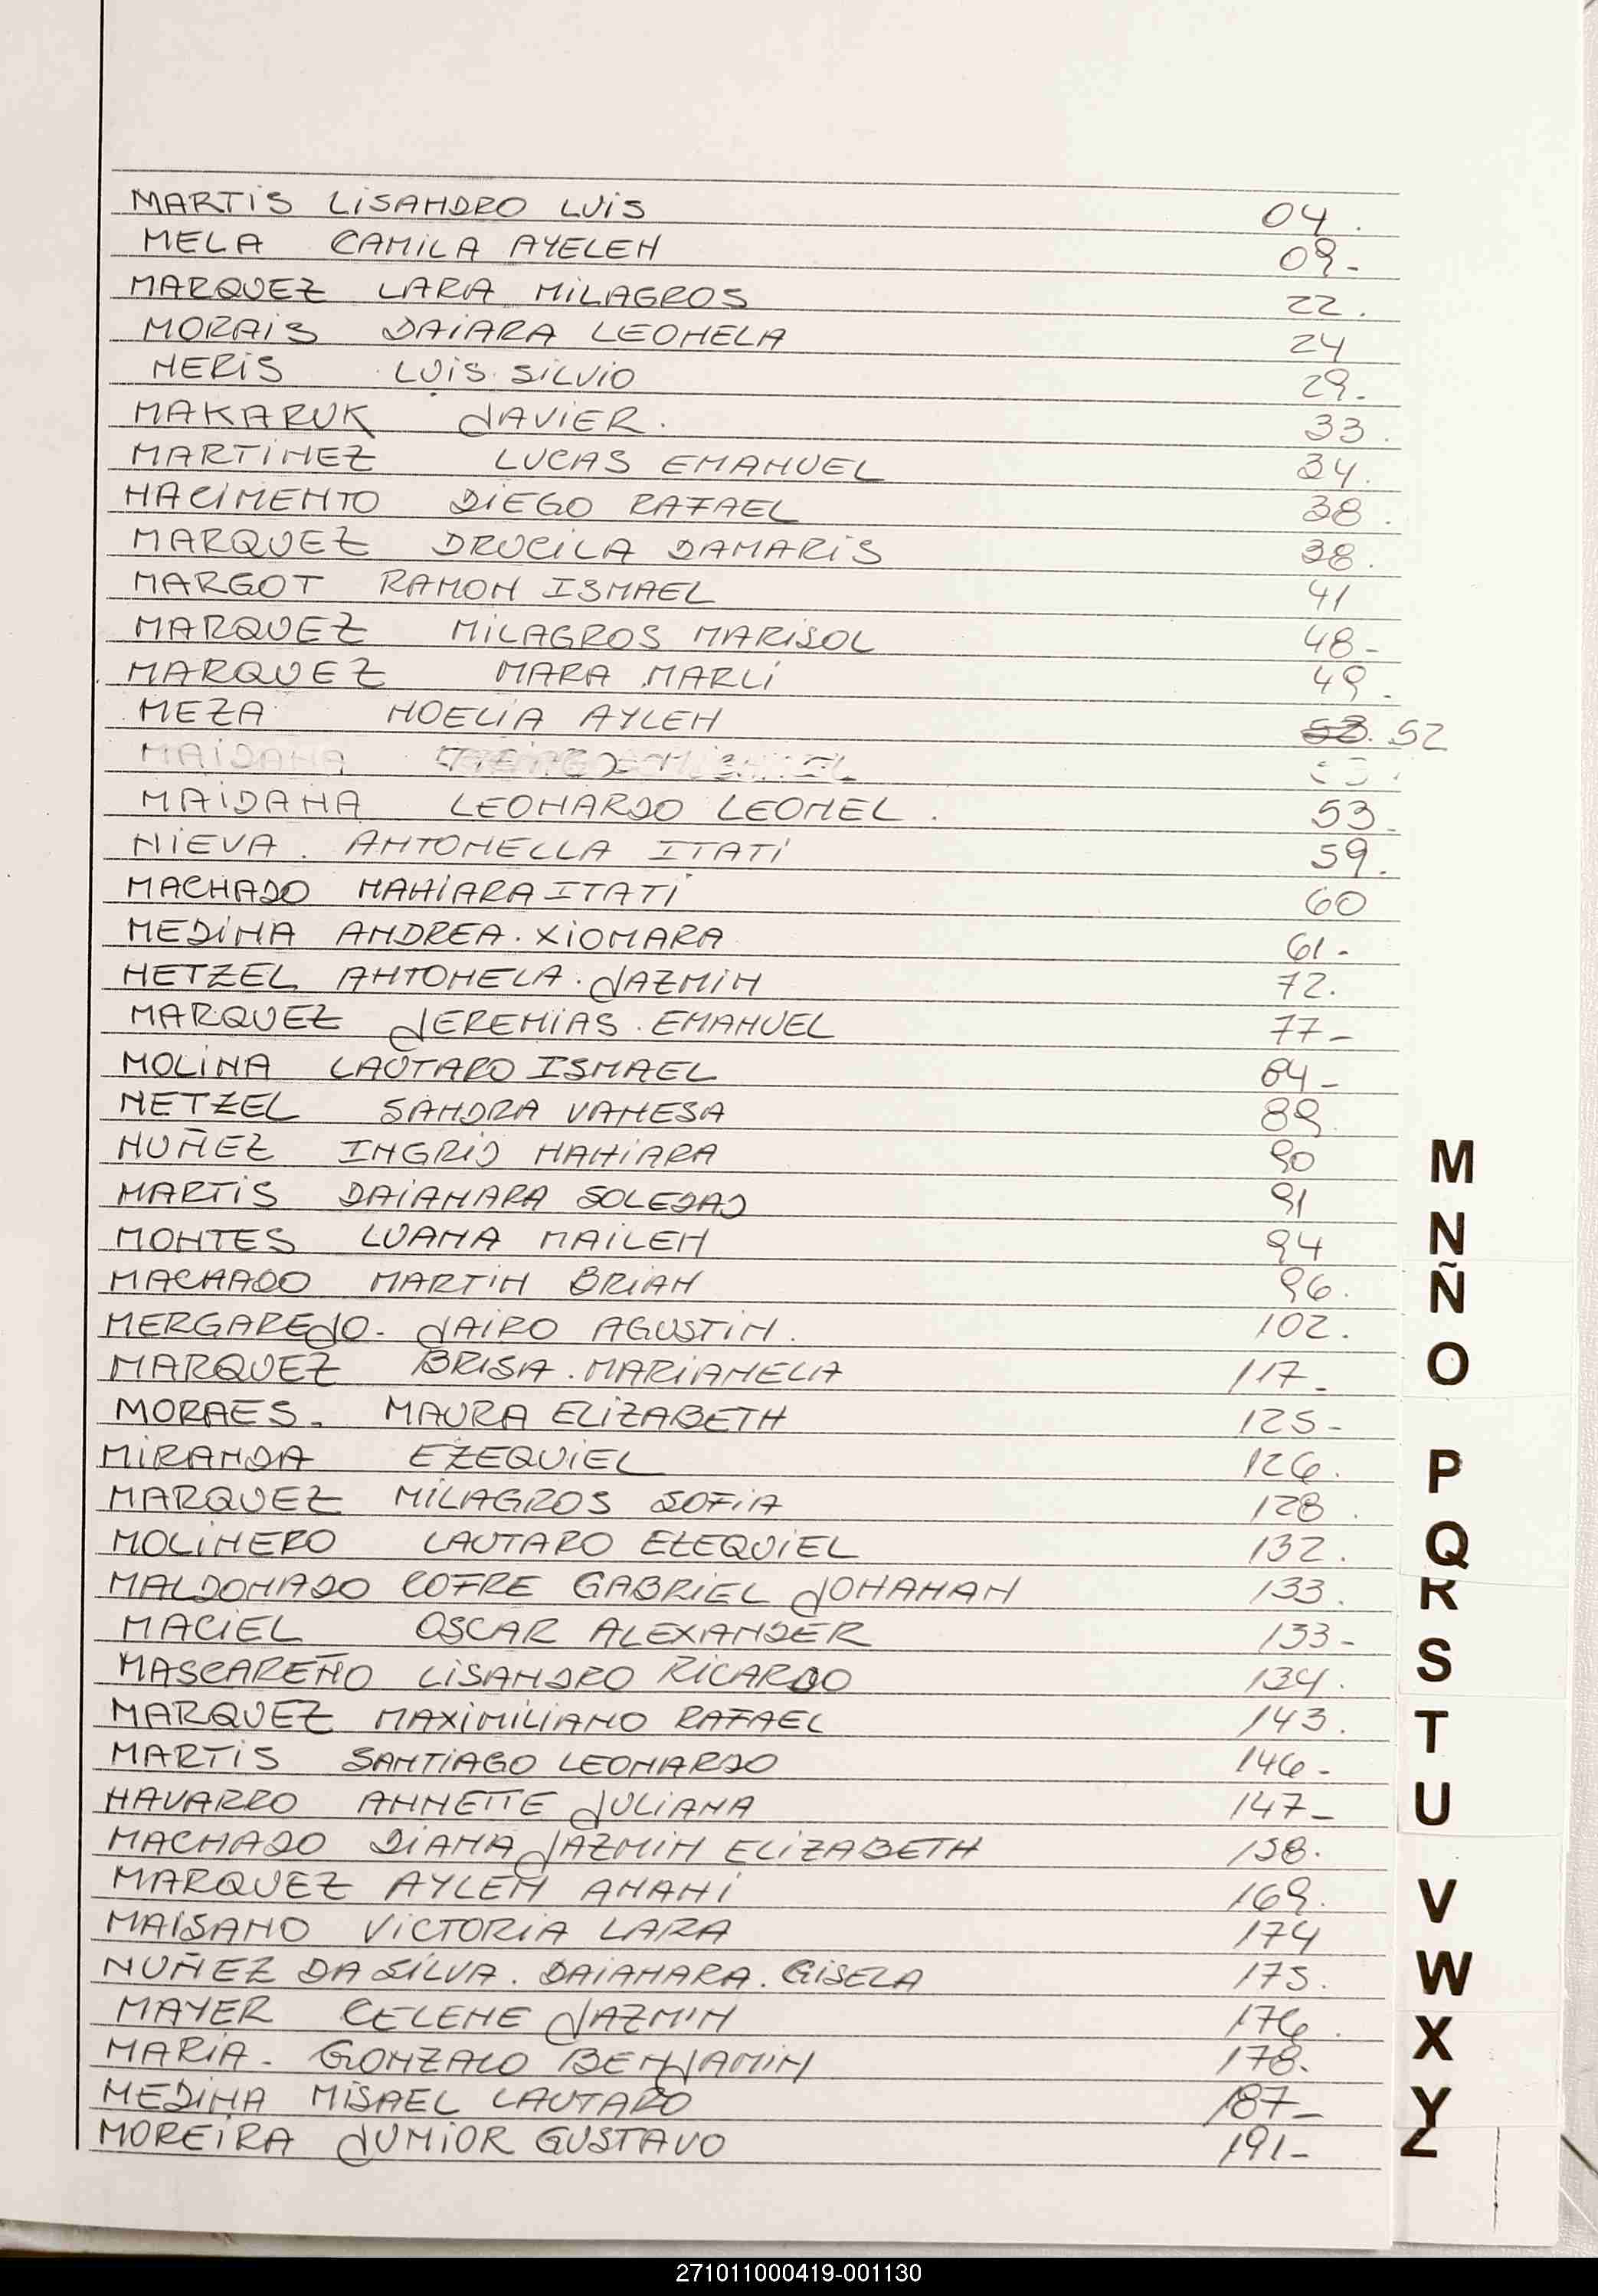 MARTIS LISANDRO LUIS 04.
MELA CAMILA AYELEN 09-
MARQUEZ LARA MILAGROS 22.
MORAIS DAIARA LEONELA 24
NERIS LUIS SILVIO 29.
MAKARUK JAVIER. 33.
MARTINEZ LUCAS EMANUEL 34.
NACIMENTO DIEGO RAFAEL 38.
MARQUEZ DRUCILA DAMARIS 38.
MARGOT RAMON ISMAEL 41
MARQUEZ MILAGROS MARISOL 48-
MARQUEZ MARA MARLI 49.
MEZA NOELIA AYLEN 53. 52
MAIDANA
MAIDANA LEONARDO LEONEL. 53.
NIEVA. ANTONELLA ITATI 59.
MACHADO NAHIARA ITATI 60
MEDINA ANDREA. XIOMARA 61-
NETZEL ANTONELA. JAZMIN 72.
MARQUEZ JEREMIAS. EMANUEL 77-
MOLINA LAUTARO ISMAEL 84-
NETZEL SANDRA VANESA 89.
NUÑEZ INGRID NAHIARA 90
MARTIS DAIANARA SOLEDAD 91
MONTES LUANA MAILEN 94
MACHADO MARTIN BRIAN 96.
MERGAREJO- JAIRO AGUSTIN. 102.
MARQUEZ BRISA. MARIANELA 117-
MORAES- MAURA ELIZABETH 125-
MIRANDA EZEQUIEL 126.
MARQUEZ MILAGROS SOFIA 128.
MOLINERO LAUTARO EZEQUIEL 132.
MALDONADO COFRE GABRIEL JONAHAN 133.
MACIEL OSCAR ALEXANDER 133-
MASCAREÑO LISANDRO RICARDO 134.
MARQUEZ MAXIMILIANO RAFAEL 143.
MARTIS SANTIAGO LEONARDO 146-
NAVARRO ANNETTE JULIANA 147-
MACHADO DIANA JAZMIN ELIZABETH 158.
MARQUEZ AYLEN ANAHI 169.
MAISANO VICTORIA LARA 174
NUÑEZ DA SILVA. DAIANARA. GISELA 175.
MAYER CELENE JAZMIN 176.
MARIA- GONZALO BENJAMIN 178.
MEDINA MISAEL LAUTARO 187-
MOREIRA JUNIOR GUSTAVO 191-
M
N
Ñ
O
P
Q
R
S
T
U
V
W
X
Y
Z
271011000419-001130